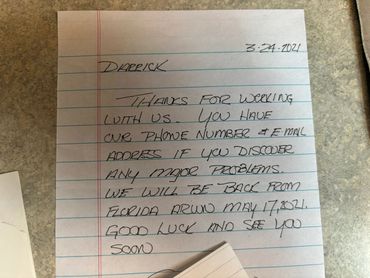 3-24-2021
DARRICK
THANKS FOR WORKING
WITH US. YOU HAVE
OUR PHONE NUMBER & EMAIL
ADDRESS IF YOU DISCOVER
ANY MAJOR PROBLEMS.
WE WILL BE BACK FROM
FLORIDA MAY 17, 2021.
GOOD LUCK AND SEE YOU
SOON